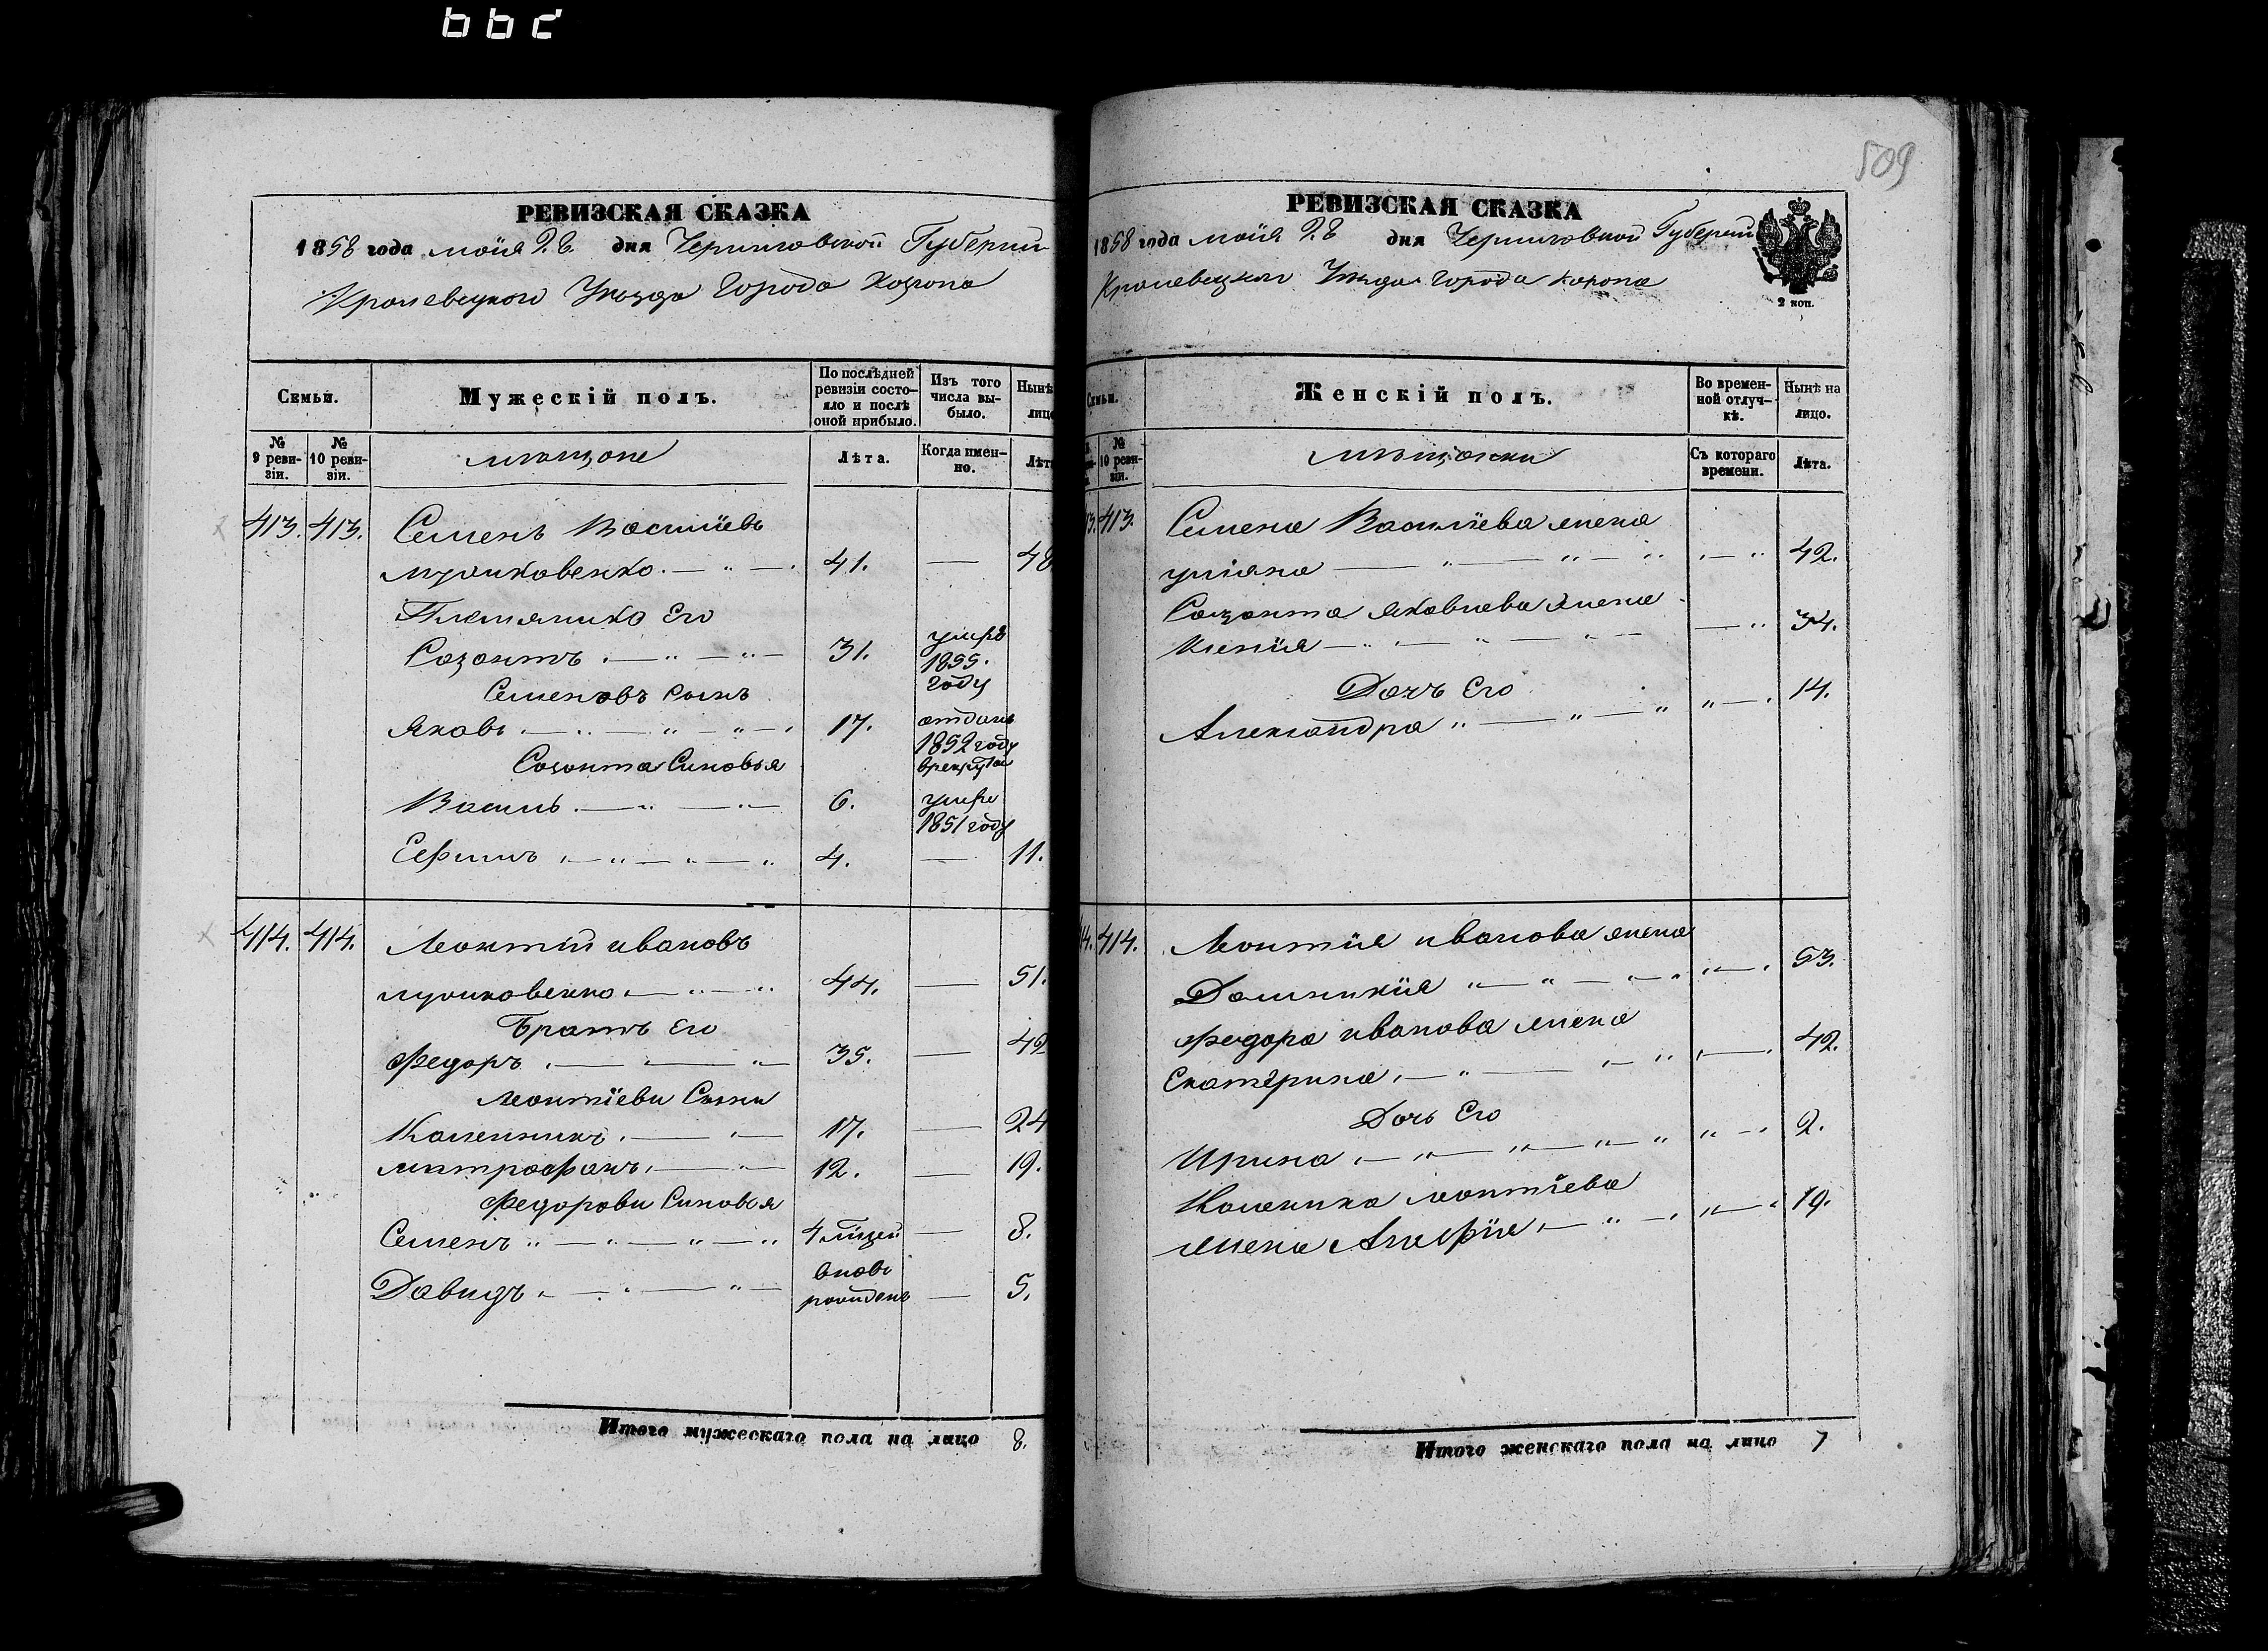 РЕВИЗСКАЯ СКАЗКА
1858 года мая 28 дня Черниговской Губернии
Кролевецкого Уезда Города Коропа
Семьи.
Мужескій полъ.
По послѣдней ревизіи состояло и послѣ оной прибыло.
Изъ того числа выбыло.
Нынѣ лицо
№ 9 ревизіи.
№ 10 ревизіи.
мѣщане
Лѣта.
Когда именно.
Лѣт
413. 413. Семенъ Васильевъ
41. — 48
Племянико Его
Созонтъ 31. умре 1855. году
Семеновъ Сынъ
Яковъ 17. отданъ 1852 году в рекруты
Созонта Синовья
Василь 6. умре 1851 году
Ефимъ 4. — 11.
414. 414. Леонтій ивановъ
44. — 51.
Братъ Его
Федоръ 35. — 42
Леонтіеви Сыни
Каленикъ 17. — 24
митрофанъ 12. — 19.
Федорови Синовья
Семенъ 4 міцей — 8.
Давидъ вновь рожденъ — 5.
Итого мужескаго пола на лицо 8.
509
РЕВИЗСКАЯ СКАЗКА
1858 года мая 28 дня Черниговской Губернии
Кролевецкого Уезда города Коропа
2 коп.
Семьи.
Женскій полъ.
Во временной отлучкѣ.
Нынѣ на лицо.
№ 10 ревизіи.
мѣщанки
Съ котораго времени.
Лѣта.
413. Семена Васильева жена
уліяна 42.
Созонта Яковлева жена
34.
Дочъ Его
Александра 14.
414. Леонтія иванова жена
Домникія 53.
Федора иванова жена
Екатерина 42.
Дочь Его
Ирина 2.
Каленика леонтіева
жена Агафія 19.
Итого женскаго пола на лицо 7